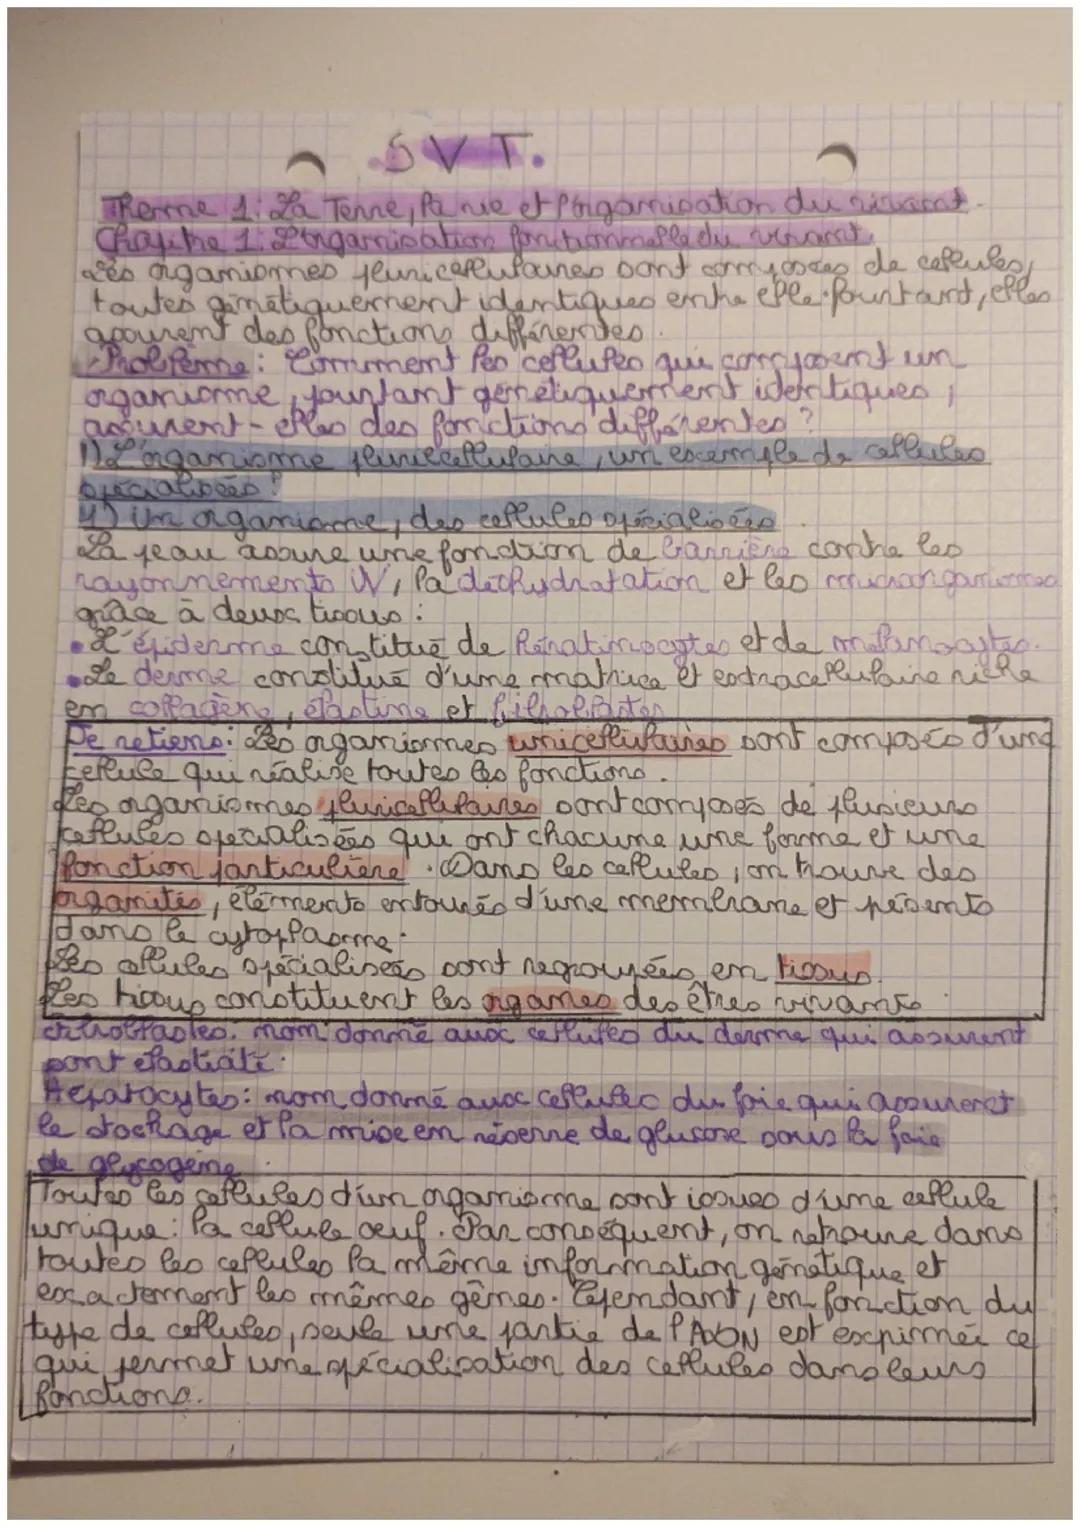 S V T.
Theme 1: La Terre, la vie et l'organisation du vivant.
Chapitre 1: L'organisation fonctionnelle du vivant.
Les organismes pluricellulaires sont composés de cellules,
toutes génétiquement identiques entre elle. Pourtant, elles
assurent des fonctions différentes.
Problème : Comment les cellules qui composent un
organisme, pourtant génétiquement identiques,
assurent-elles des fonctions différentes ?
1) L'organisme pluricellulaire, un exemple de cellules
spécialisées.
1) Un organisme, des cellules spécialisées
La peau assure une fonction de barrière contre les
rayonnements UV, la déshydratation et les microorganismes
grâce à deux tissus :
• L'épiderme constitué de kératinocytes et de mélanocytes.
• Le derme constitué d'une matrice et extracellulaire riche
en collagène, élastine et fibroblastes
Je retiens: Les organismes unicellulaires sont composés d'une
cellule qui réalise toutes les fonctions.
Les organismes pluricellulaires sont composés de plusieurs
cellules spécialisées qui ont chacune une forme et une
fonction particulière. Dans les cellules, on trouve des
organites, éléments entourés d'une membrane et présents
dans le cytoplasme.
Les cellules spécialisées sont regroupées en tissus.
Les tissus constituent les organes des êtres vivants.
Fibroblastes: nom donné aux cellules du derme qui assurent
sont élasticité.
Hépatocytes: nom donné aux cellules du foie qui assurent
le stockage et la mise en réserve de glucose sous la foie
de glycogène.
Toutes les cellules d'un organisme sont issues d'une cellule
unique: la cellule œuf. Par conséquent, on retrouve dans
toutes les cellules la même information génétique et
exactement les mêmes gênes. Cependant, en fonction du
type de cellules, seule une partie de l'ADN est exprimée ce
qui permet une spécialisation des cellules dans leurs
fonctions.